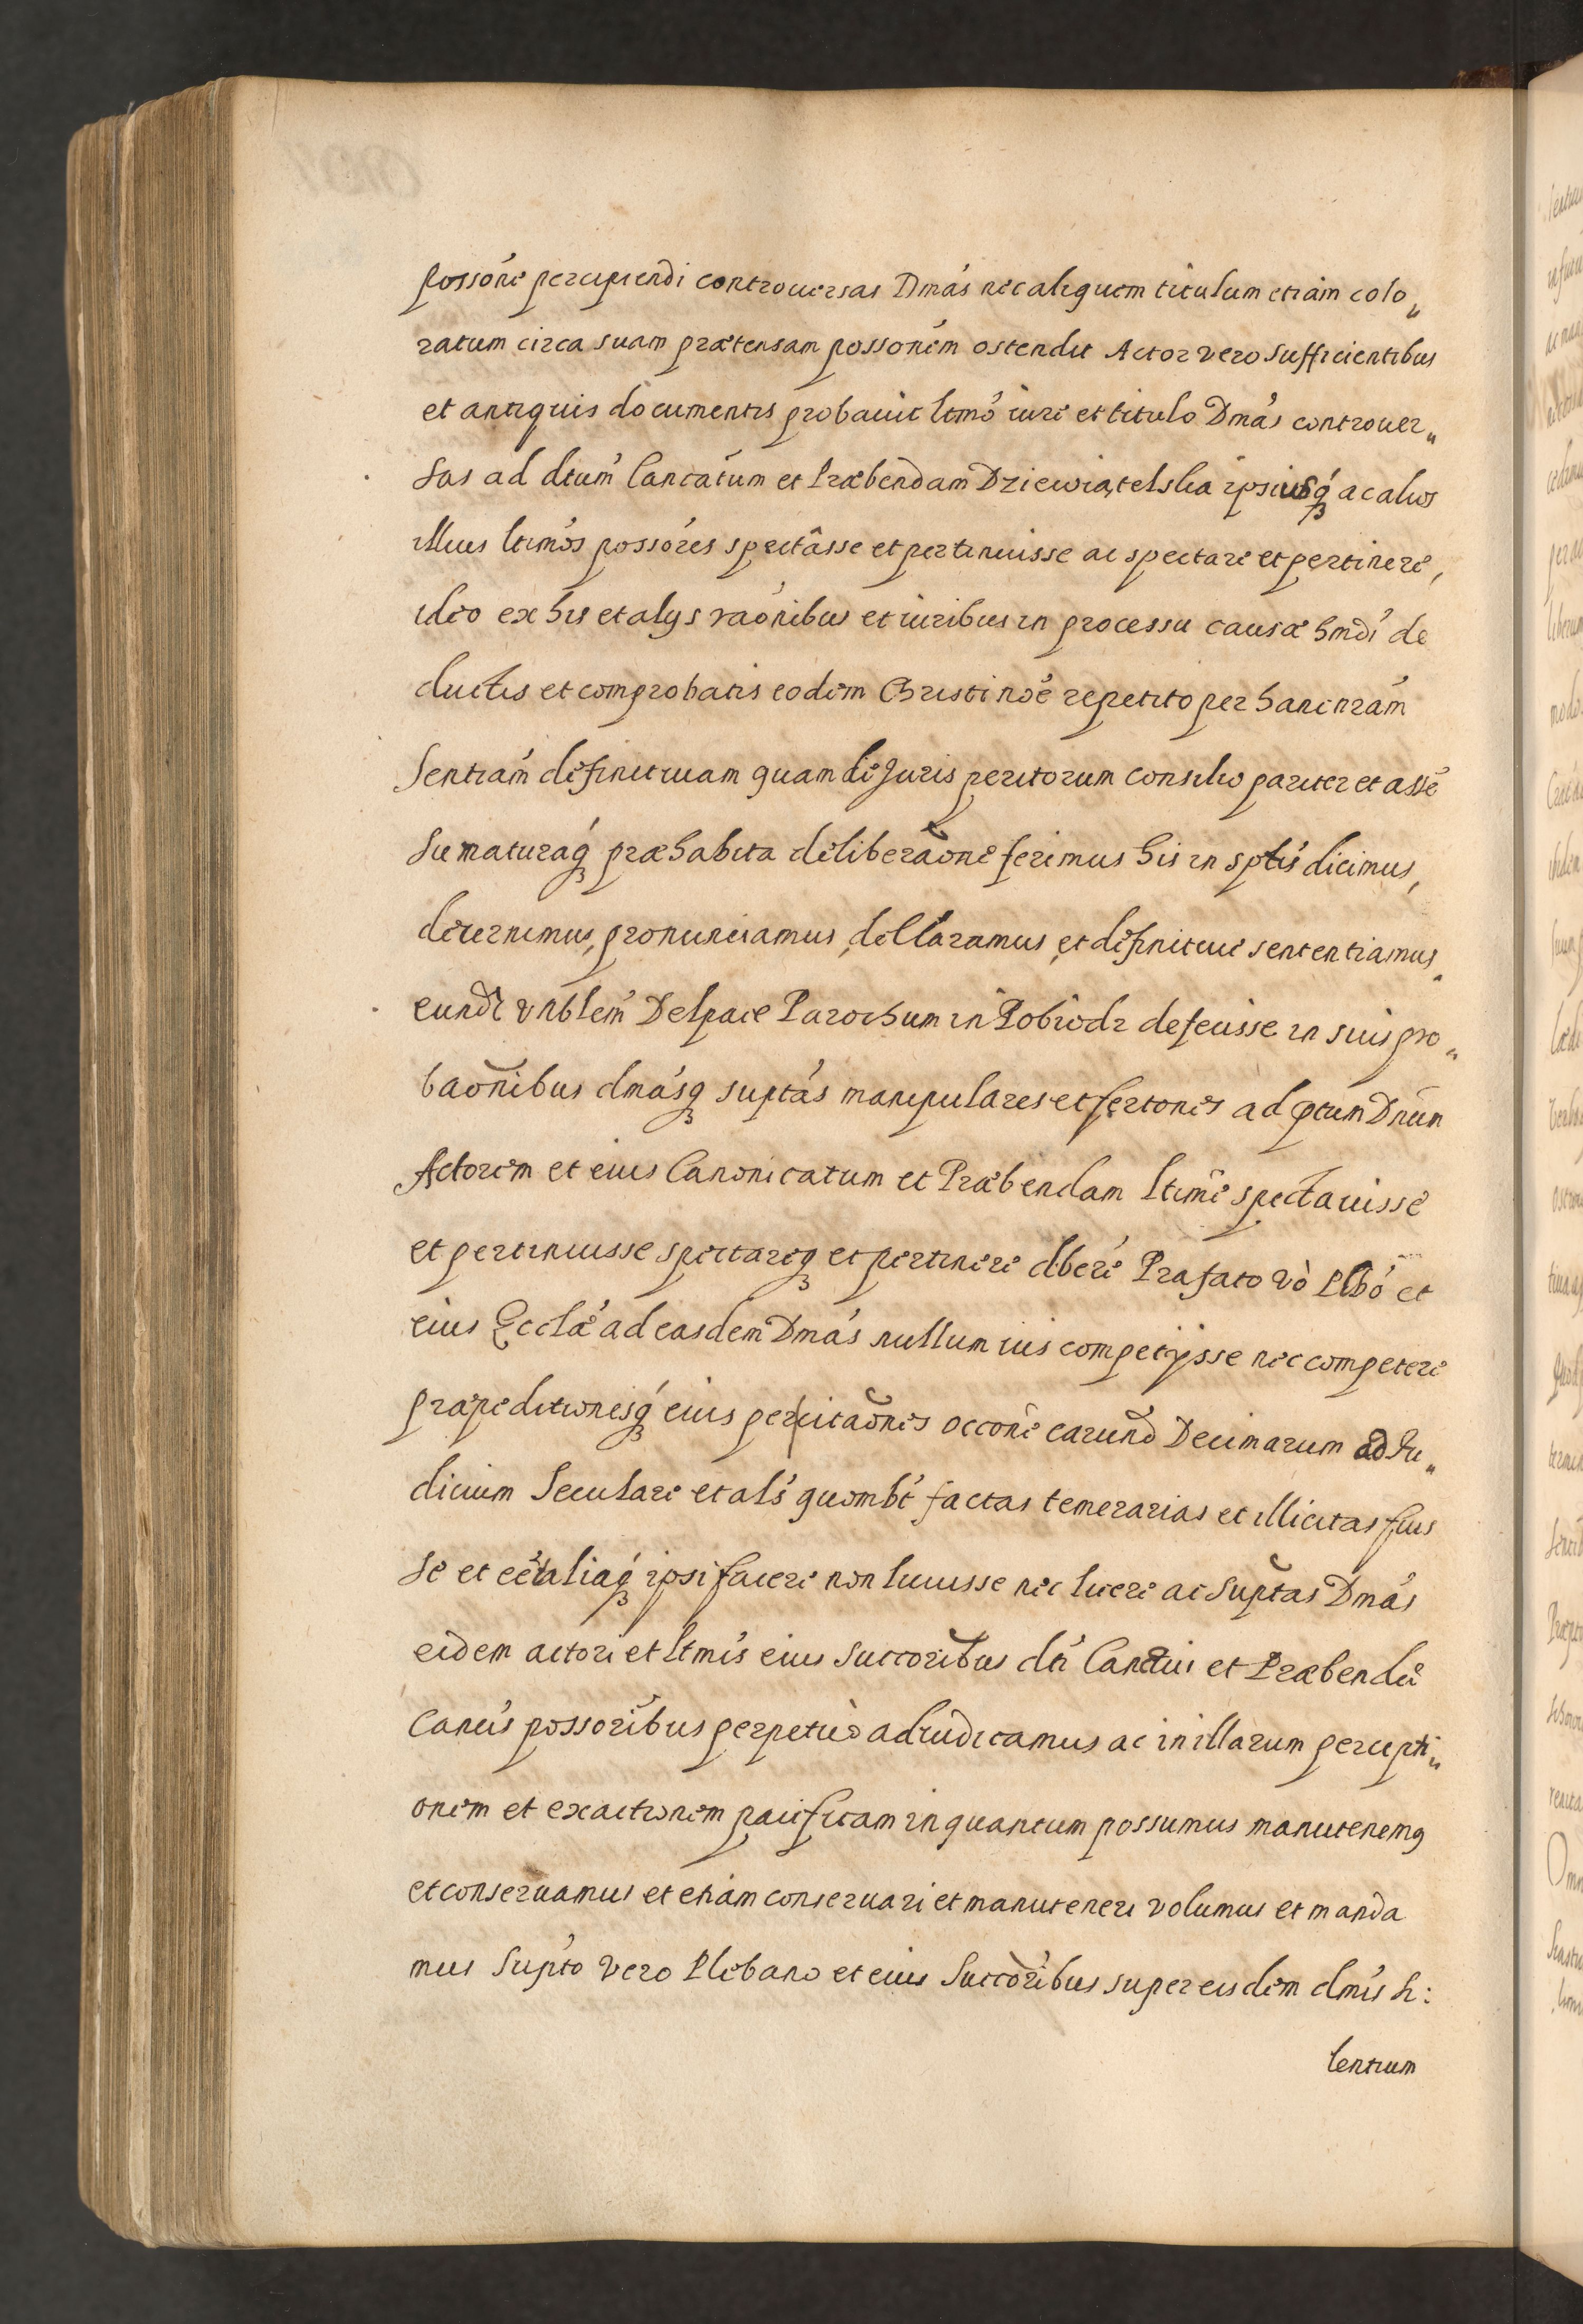 possóne percipiendi controuersas Dmás nec aliquem titulum etiam colo„
ratum circa suam prætensam possoném ostendit Actor vero sufficientibus
et antiquis documentis probauit ltmó iure et titulo Dmás controuer„
sas ad dtum̃ Cancatum et Præbendam Dziewiątelska ipsiusq́ ac alios
illius ltimós possóres spectâsse et pertinuisse ac spectare et pertinere,
ideo ex his et alys raónibus et iuribus in processu causæ hmdi de
ductis et comprobatis eodem Christi noé repetito per hanc nrám
Sentiám definitiuam quam de Juris peritorum consilio pariter et assé
su maturaq́ præhabita deliberaõne ferimus his in sptis dicimus,
decernimus, pronunciamus, declaramus, et definitiue sententiamus
eund́ vnblem̃ Delpace Parochum in Pobiodr defecisse in suis pro„
baõnibus dmásq suptás manipulares et fertones ad ptum Dnũm
Actorem et eius Canonicatum et Præbendam ltimé spectauisse
et pertinuisse spectareq et pertinere dberé Præfato vò Plbó et
eius Ecclæ ad easdem Dmás nullum ius competijsse nec competere
præpeditionesq́ eius percitaõnes occoné earund̃ Decimarum ad Iu„
dicium Seculare et als̃ quombt́ factas temerarias et illicitas fuis
se et eé taliaq́ ipsi facere non licuisse nec licere ac suptas Dmás
eidem actori et ltmis eius succoribus dti Canctui et Præbendæ
Canctis possoribus perpetuò adiudicamus ac in illarum percepti„
onem et exactionem pacificam in quantum possumus manutenemq
et conseruamus et etiam conseruari et manuteneri volumus et manda
mus Supto vero Plebano et eius Succoribus super eisdem dmis si:
lentium